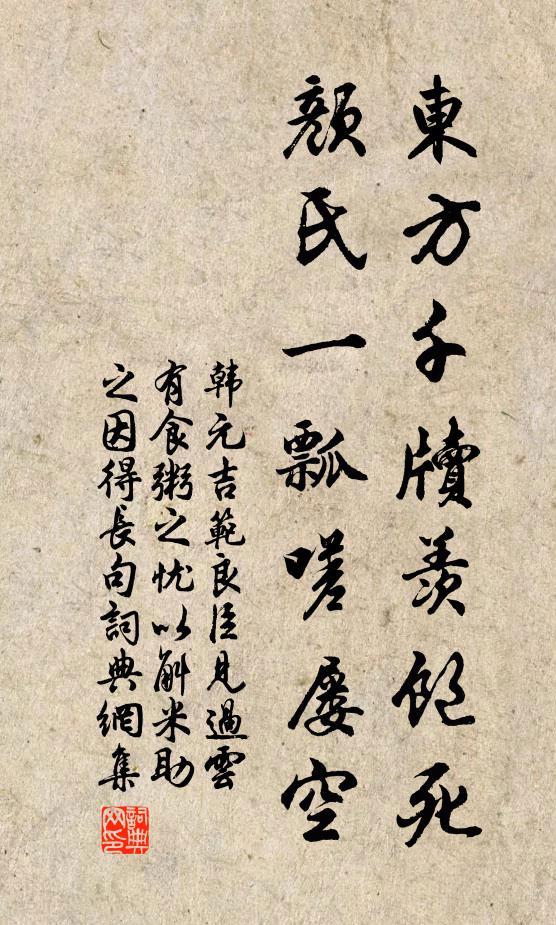 東方千牘羨飽死
顏氏一瓢嗟屢空
韩元吉範良臣見過雲
有食粥之忧以斛米助
之因得長句詞典網集
詞典网印